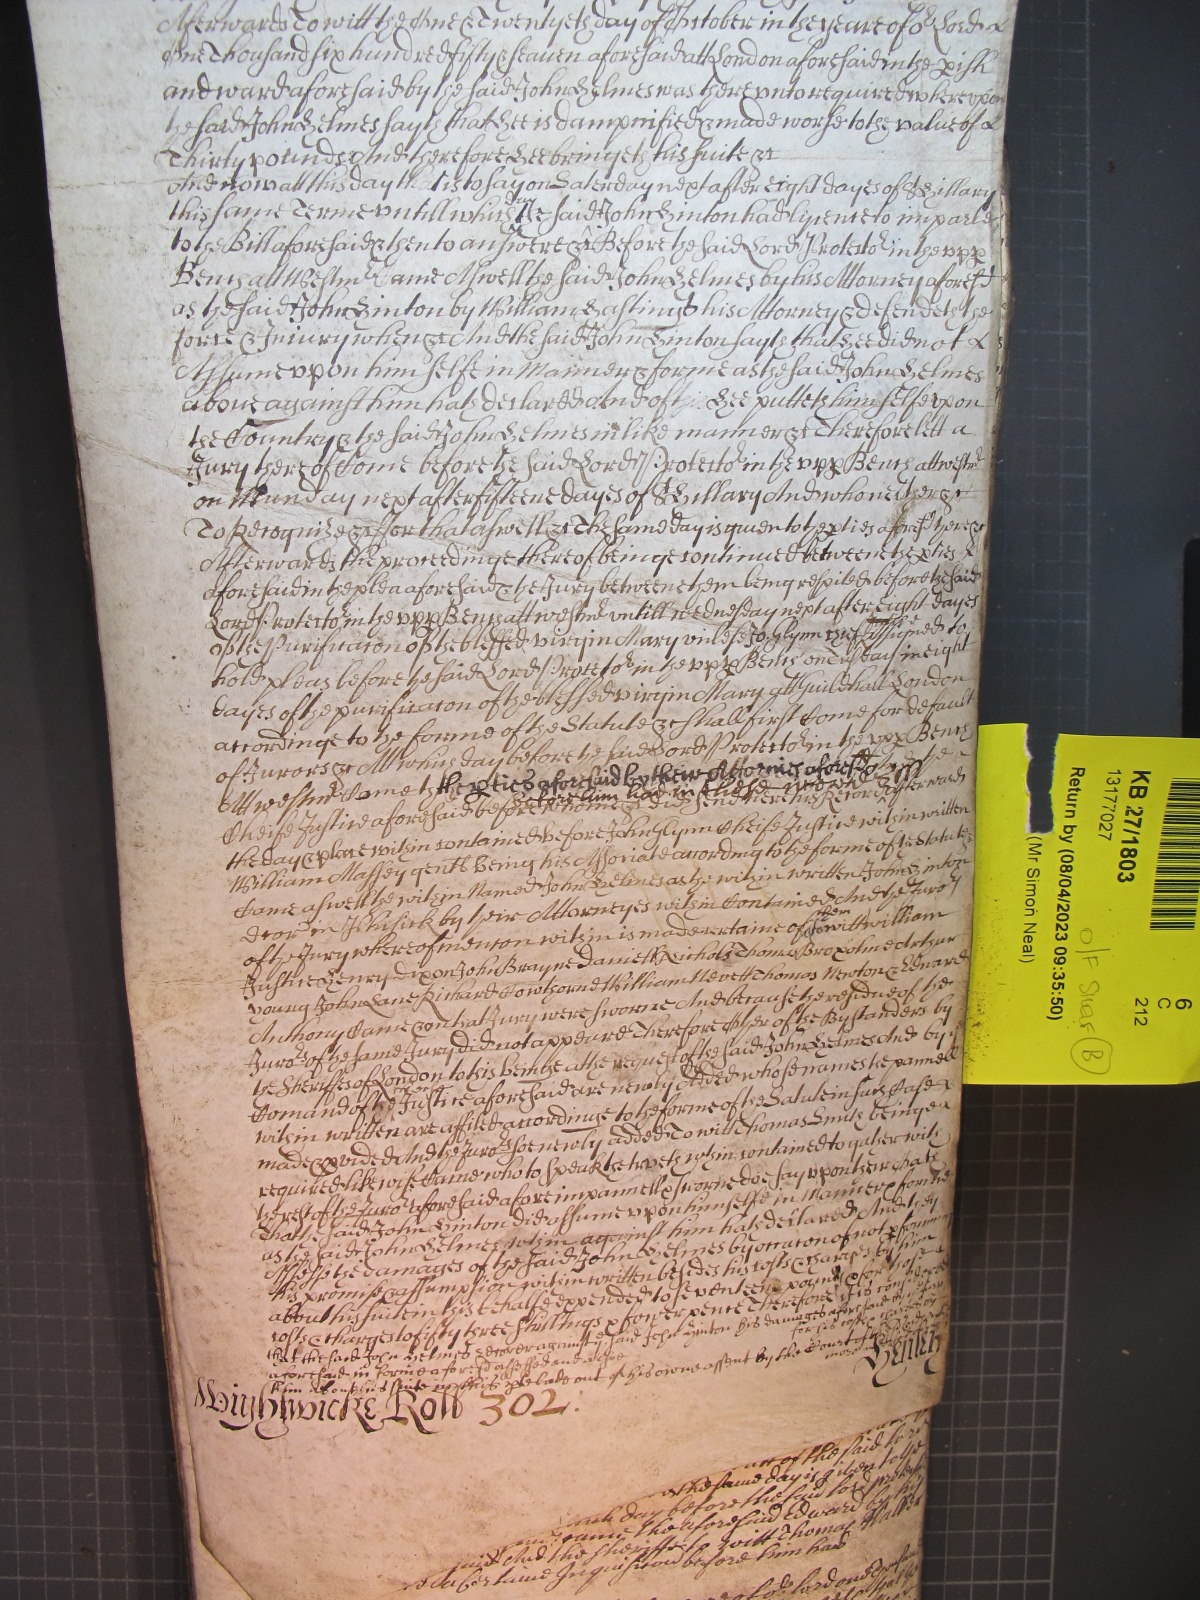 Afterwards To witt the One & Twentyeth day of October in the yeare of or Lord
One Thousand six hundred fifty & seaven aforesaid att London aforesaid in the pish
and ward aforesaid by the said John Helmes was there unto required whereupon
the said John Helmes sayth that hee is dampnified & made worse to the value of
Thirty pounds And therefore hee bringeth his suite &c
And now att this day that is to say on Saterday next after eight dayes of St Hillary
this same Terme untill which day the said John Hinton had lycence to imparle
to the Bill aforesaid & then to answere &c Before the said Lord Protector in the upp
Bench att Westmr Came Aswell the said John Helmes by his Attorney aforesd
as the said John Hinton by William Hastings his Attorney & defendeth the
force & Injury when &c And the said John Hinton sayth that hee did not
Assume upon him selfe in Manner & forme as the said John Helmes
above against him hath declared And of this hee putteth him selfe upon
the Country & the said John Helmes in like manner &c Therefore lett a
Jury thereof Come before the said Lord Protector in the upp Bench att westmr
on Munday next after fifteene dayes of St Hillary And who neither &c
To Recognize &c For that aswell &c The same day is given to the pties aforesd there &c
Afterwards the proceedinge thereof beinge continued betweene the pties
aforesaid in the plea aforesaid & the Jury betweene them being respited before the said
Lord Protector in the upp Bench att westmr untill wednesday next after eight dayes
of the Purificacon of the blessed virgin Mary unlesse John Glynn cheife Justice assigned to
hold pleas before the said Lord Protector in the upp Bench on in eight
dayes of the purificacon of the blessed virgin Mary att Guildhall London
accordinge to the forme of the Statute &c shall first Come for default
of Jurors &c Att which day before the said Lord Protector in the upp Bench
att westmr Came the pties aforesaid by their Attorneies aforesd
Cheife Justice aforesaid before whome &c did send here his Record Afterwards
the day & place within contained before John Glynn Cheife Justice within written
William Massey gentl being his Associate according to the forme of the Statute
Came aswell the within Named John Helmes as the within written John Hinton
by their Attorneyes within Contained And the Juro's
of the Jury whereof mencon within is made certaine of them To witt William
Justice Henry Dixon John Brayne Daniell Nichols Thomas Arthur
young John Lane Richard Cowthorne William Thomas Newton & Edward
Anthony Came & on that Jury were sworne And because the residue of the
Juro's of the same Jury did not appeare Therefore other of the By standers by
the Sheriffes of London to this beinge att the request of the said John Helmes And by
Comand of the Cheife Justice aforesaid are newly Added whose names the pannell
within written are affiled accordinge to the forme of the Statute in such Case
made & pvided And the Juro's soe newly added To witt Thomas Smith beinge
required likewise Came who to speake the truth within contained togather with
the rest of the Juro's aforesaid afore impannelld & sworne doe say upon their Oath
That the said John Hinton did assume upon himselfe in Manner & forme
as the said John Helmes within against him hath declared And they
Assesse the damages of the said John Helmes by occacon of not pforming
his promise & assumpsion within written besides his costs & charges by him
about his suite in this behalfe expended to seventeene pounds & for those
costs & charges to fifty three shillings & fower pence Therefore it is considered
that the said John Helmes Recover against the said John Hinton his damages aforesaid by the Jury
aforesaid in forme aforesd assessed and alsoe for his costs & charges by
him about his suite of his owne assent by the Court of the
Wightwicke Roll 302.
of the said lord
the same day is given to the
day before the said lord protector
came the aforesaid Edward by his
And the Sheriffe to witt Thomas Walker
a Certaine Inquisicon before him had
KB 27/1803
13177027
Return by (08/04/2023 09:35:50)
(Mr Simon Neal)
6
C
212
O/F B